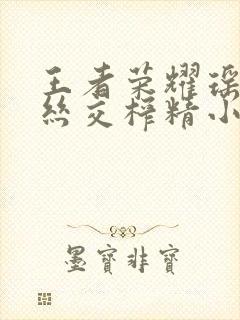 王者荣耀瑶
丝交榨精小
墨寶非寶